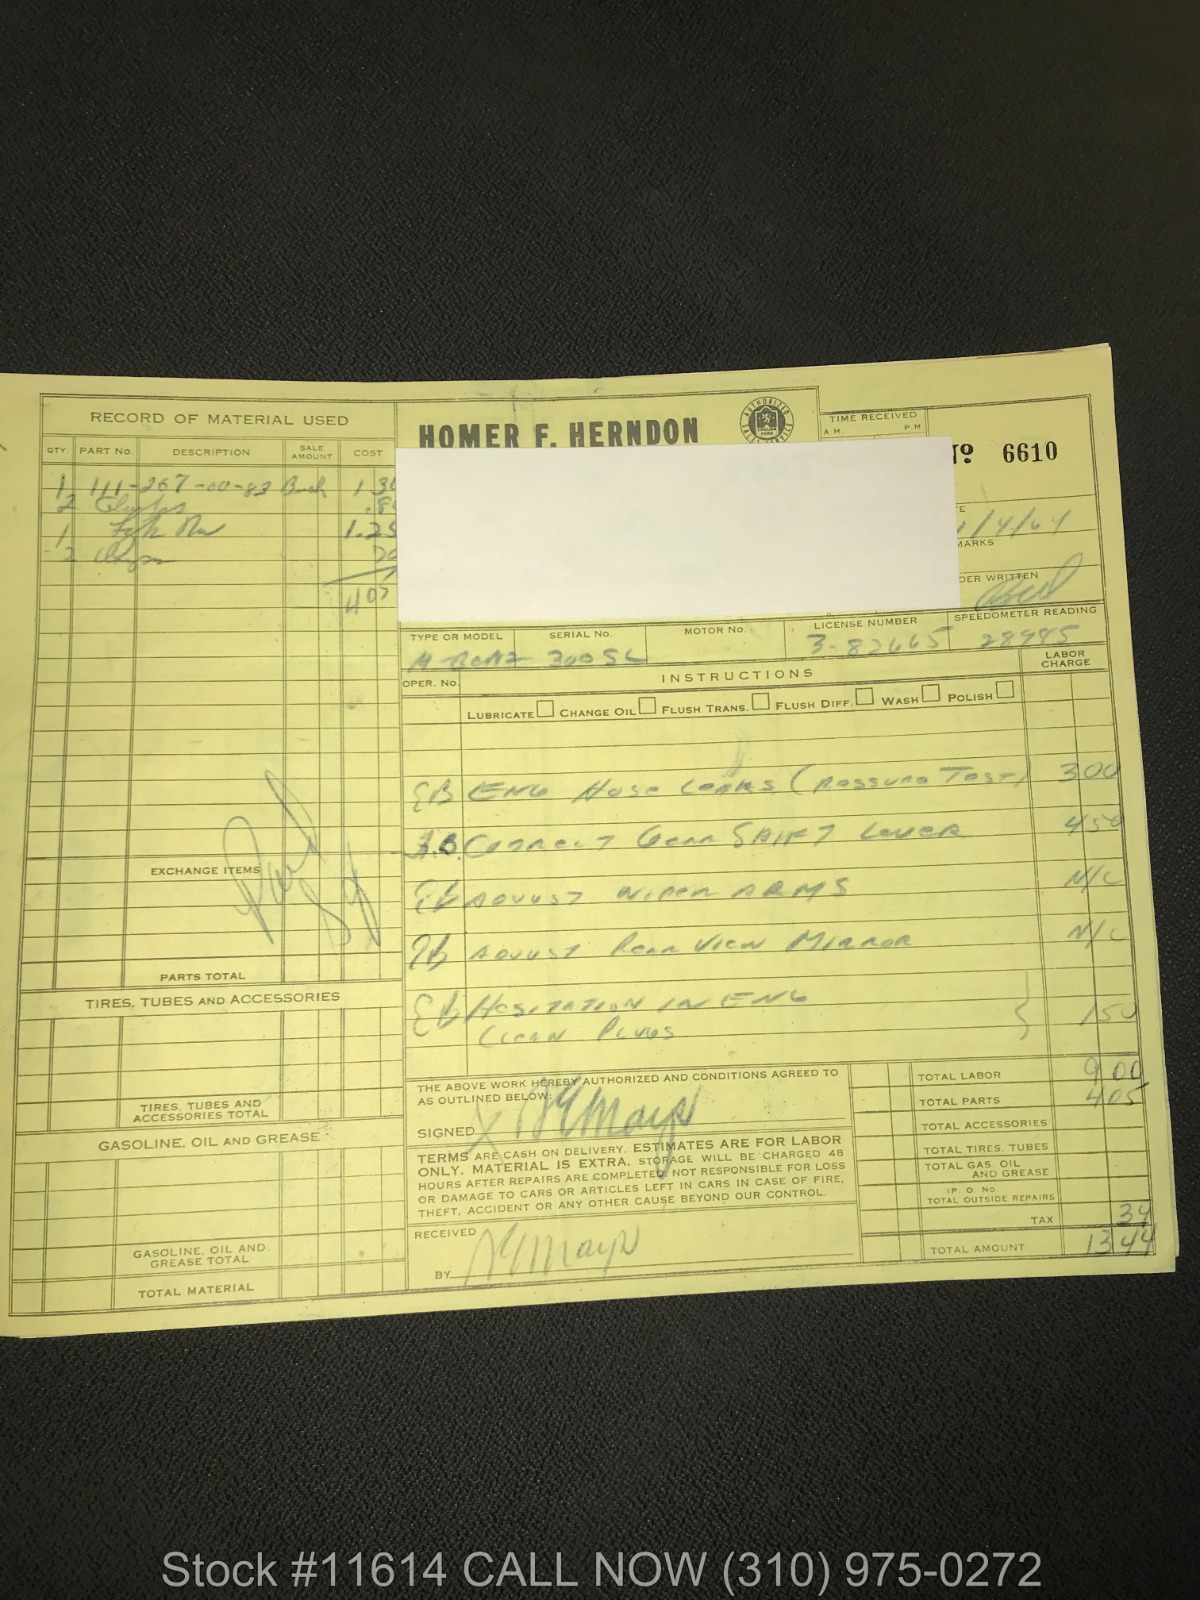 RECORD OF MATERIAL USED
QTY. PART NO. DESCRIPTION SALE AMOUNT COST
1 111-267-00-83 Bush 1 30
2 .80
1 1.25
2 70
4 05
EXCHANGE ITEMS
Paid
PARTS TOTAL
TIRES, TUBES AND ACCESSORIES
TIRES, TUBES AND
ACCESSORIES TOTAL
GASOLINE, OIL AND GREASE
GASOLINE, OIL AND
GREASE TOTAL
TOTAL MATERIAL
HOMER F. HERNDON
AUTHORIZED
TIME RECEIVED
A.M. P.M
No 6610
/4/64
DER WRITTEN
TYPE OR MODEL SERIAL NO. MOTOR NO. LICENSE NUMBER SPEEDOMETER READING
M BENZ 300SL 3-82665 28985
OPER. NO. INSTRUCTIONS LABOR CHARGE
LUBRICATE CHANGE OIL FLUSH TRANS. FLUSH DIFF. WASH POLISH
EB ENG HOSE LEAKS (PRESSURE TEST) 300
CORRECT GEAR SHIFT LEVER 450
ADJUST WIPER ARMS N/C
ADJUST REAR VIEW MIRROR N/C
EB HESITATION IN ENG
CLEAN PLUGS 150
THE ABOVE WORK HEREBY AUTHORIZED AND CONDITIONS AGREED TO
AS OUTLINED BELOW:
SIGNED X
TERMS ARE CASH ON DELIVERY. ESTIMATES ARE FOR LABOR
ONLY. MATERIAL IS EXTRA. STORAGE WILL BE CHARGED 48
HOURS AFTER REPAIRS ARE COMPLETED. NOT RESPONSIBLE FOR LOSS
OR DAMAGE TO CARS OR ARTICLES LEFT IN CARS IN CASE OF FIRE,
THEFT, ACCIDENT OR ANY OTHER CAUSE BEYOND OUR CONTROL.
RECEIVED
BY
TOTAL LABOR 9 00
TOTAL PARTS 405
TOTAL ACCESSORIES
TOTAL TIRES, TUBES
TOTAL GAS, OIL
AND GREASE
(P. O NO.
TOTAL OUTSIDE REPAIRS
TAX 39
TOTAL AMOUNT 13 44
Stock #11614 CALL NOW (310) 975-0272